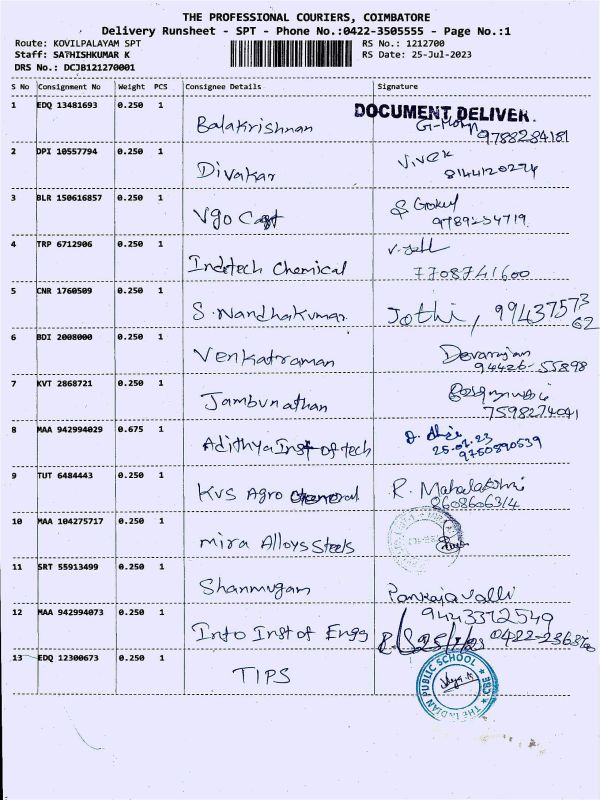 THE PROFESSIONAL COURIERS, COIMBATORE
Delivery Runsheet - SPT - Phone No.:0422-3505555 - Page No.:1
Route: KOVILPALAYAM SPT
RS No.: 1212700
Staff: SATHISHKUMAR K
RS Date: 25-Jul-2023
DRS No.: DCJB121270001
S No Consignment No Weight PCS Consignee Details Signature
DOCUMENT DELIVER.
1 EDQ 13481693 0.250 1 Balakrishnan G-Mohn
9788284181
2 DPI 10557794 0.250 1 Divakar Vivek
8144120274
3 BLR 150616857 0.250 1 Vgo Cast Gokul
9789254719
4 TRP 6712906 0.250 1 Indotech Chemical
7708741600
5 CNR 1760509 0.250 1 S.Nandhakumar Jothi, 99437573
62
6 BDI 2008000 0.250 1 Venkatraman Devarajan
94426-55898
7 KVT 2868721 0.250 1 Jambunathan
7598274041
8 MAA 942994029 0.675 1 Adithya Inst of tech
25.07.23
9750890539
9 TUT 6484443 0.250 1 KVS Agro R. Mahalakshmi
8608606314
10 MAA 104275717 0.250 1 Mira Alloys Steels
11 SRT 55913499 0.250 1 Shanmugam Pankajavalli
9443372549
12 MAA 942994073 0.250 1 Info Inst of Engg 25/7/23 0422-2368700
13 EDQ 12300673 0.250 1 TIPS
THE INDIAN PUBLIC SCHOOL CBE